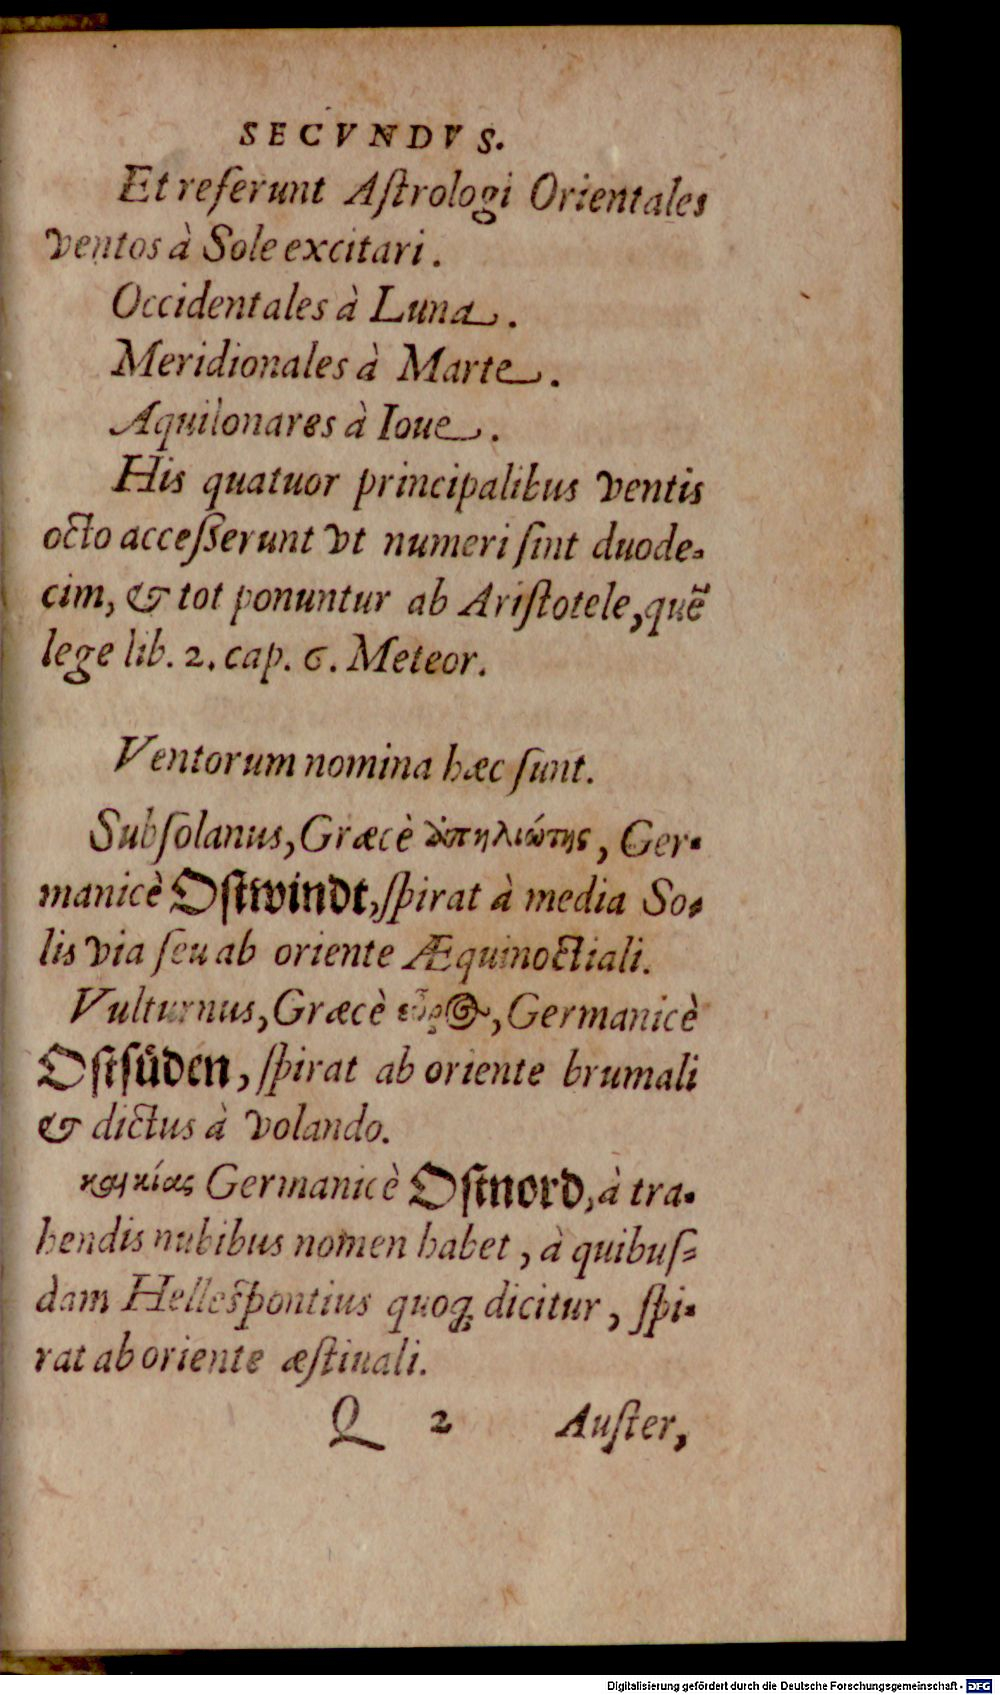 SECVNDVS.
Et referunt Aſtrologi Orientales
ventos à Sole excitari.
Occidentales à Luna.
Meridionales à Marte.
Aquilonares à Ioue.
His quatuor principalibus ventis
octo acceſſerunt vt numeri ſint duode-
cim, & tot ponuntur ab Ariſtotele, quẽ
lege lib. 2. cap. 6. Meteor.
Ventorum nomina hæc ſunt.
Subſolanus, Græcè ἀπηλιώτης, Ger-
manicè Oſtwindt, ſpirat à media So-
lis via ſeu ab oriente Æquinoctiali.
Vulturnus, Græcè εὖρος, Germanicè
Oſtſüden, ſpirat ab oriente brumali
& dictus à volando.
καικίας Germanicè Oſtnord, à tra-
hendis nubibus nomen habet, à quibuſ-
dam Helleſpontius quoq; dicitur, ſpi-
rat ab oriente æſtiuali.
Q 2 Auſter,
Digitalisierung gefördert durch die Deutsche Forschungsgemeinschaft - DFG